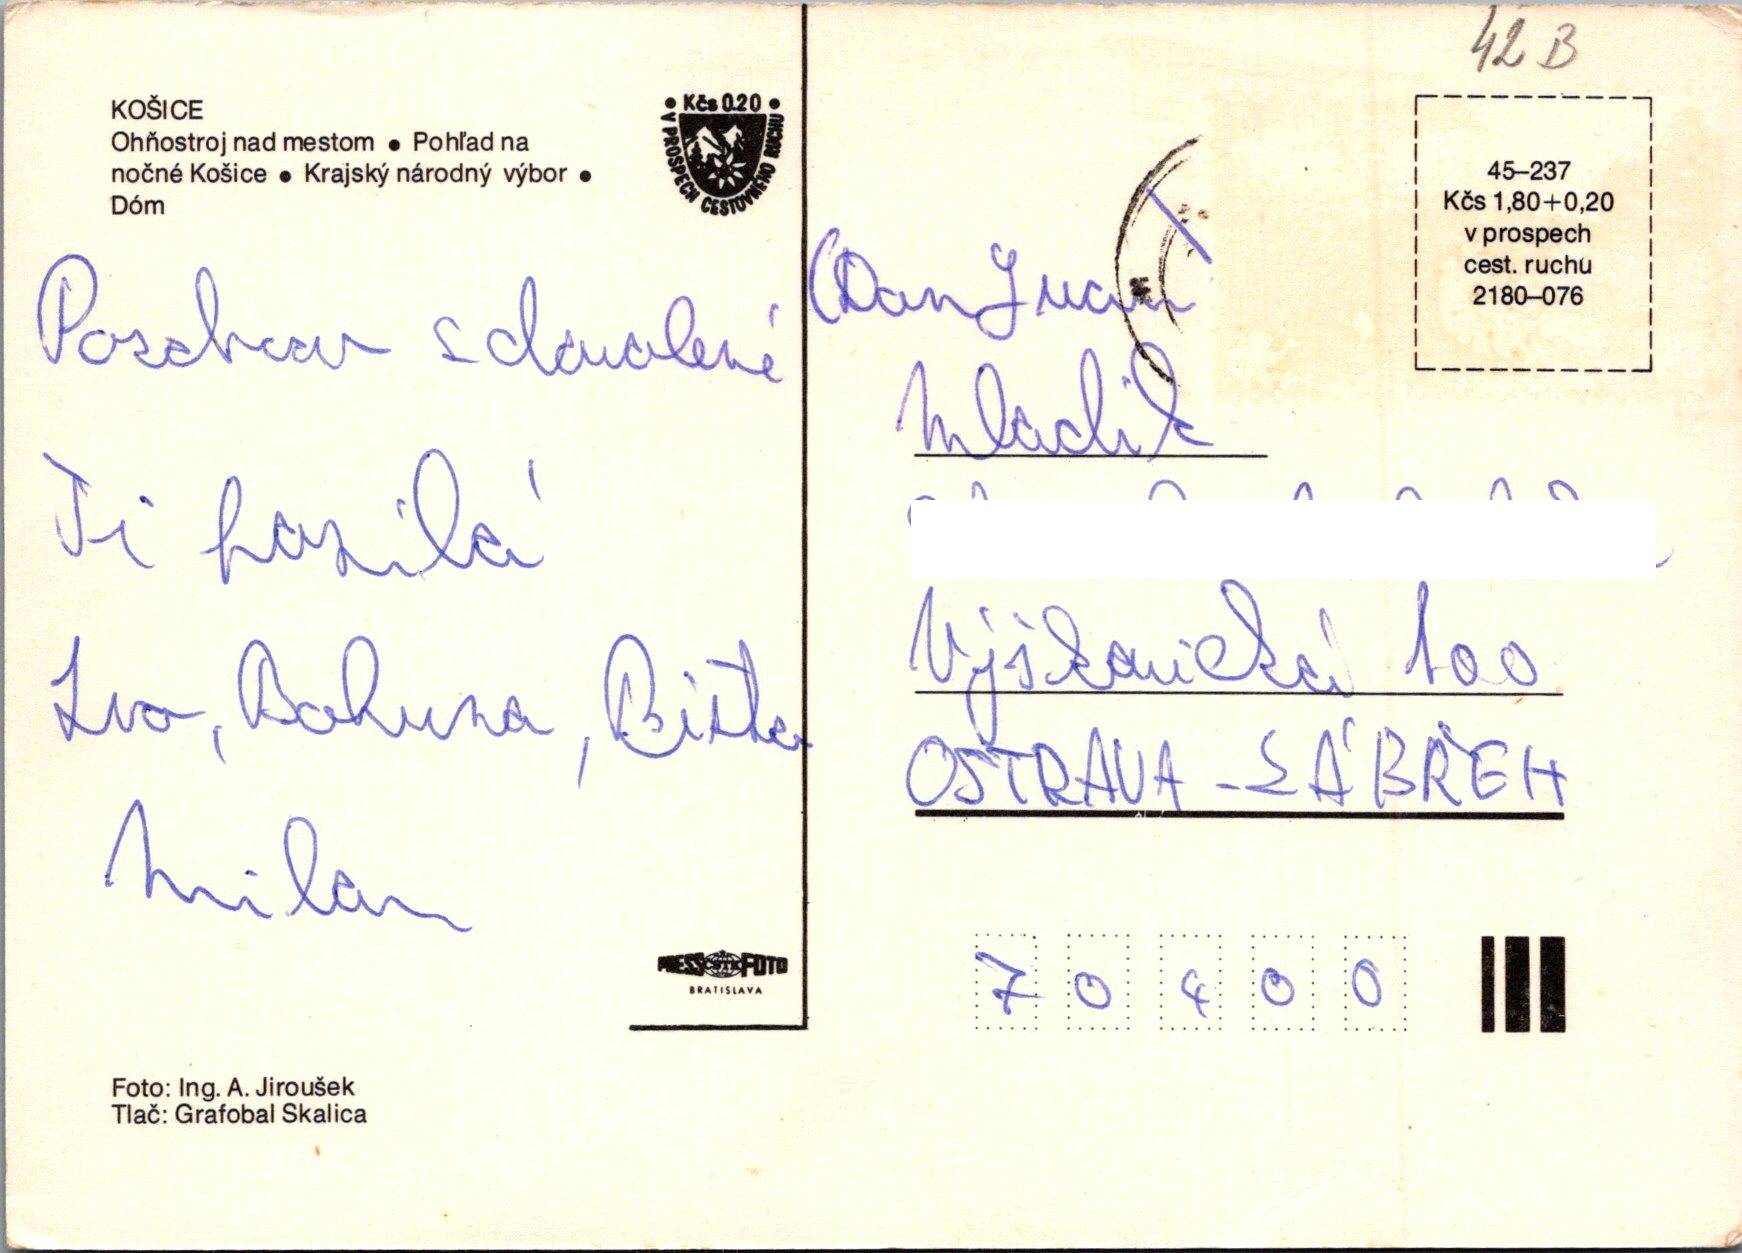 42 B
KOŠICE
Ohňostroj nad mestom ● Pohľad na
nočné Košice ● Krajský národný výbor ●
Dóm
● Kčs 0.20 ●
V PROSPECH CESTOVNÉHO RUCHU
45–237
Kčs 1,80+0,20
v prospech
cest. ruchu
2180–076
Pozdrav s dovolené
Ti posílá
Ivo, Bohuna, Bišta
Milan
(Don Juan)
Mladík
Výškovická 100
OSTRAVA - ZÁBŘEH
70400
PRESSFOTO
BRATISLAVA
Foto: Ing. A. Jiroušek
Tlač: Grafobal Skalica